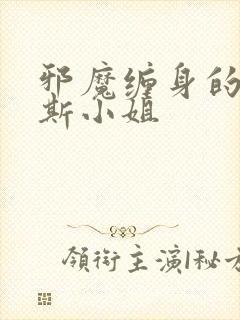 邪魔缠身的
斯小姐
領衔主演|秘方